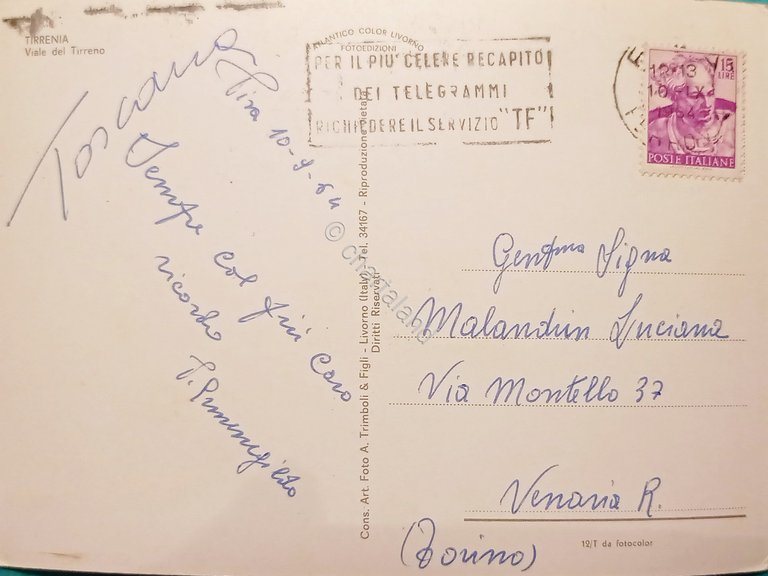 TIRRENIA
Viale del Tirreno
Toscana
Pisa 10-9-64
Sempre col più caro
ricordo
ATLANTICO COLOR LIVORNO
FOTOEDIZIONI
PER IL PIU' CELERE RECAPITO
DEI TELEGRAMMI
RICHIEDERE IL SERVIZIO "TF"
12-13
15
LIRE
POSTE ITALIANE
Cons. Art. Foto A. Trimboli & Figli - Livorno (Italy) - Tel. 34167 - Riproduzione Vietata
Diritti Riservati
© chartaland
Gent.ma Sig.na
Malandrin Luciana
Via Montello 37
Venaria R.
(Torino)
12/T da fotocolor